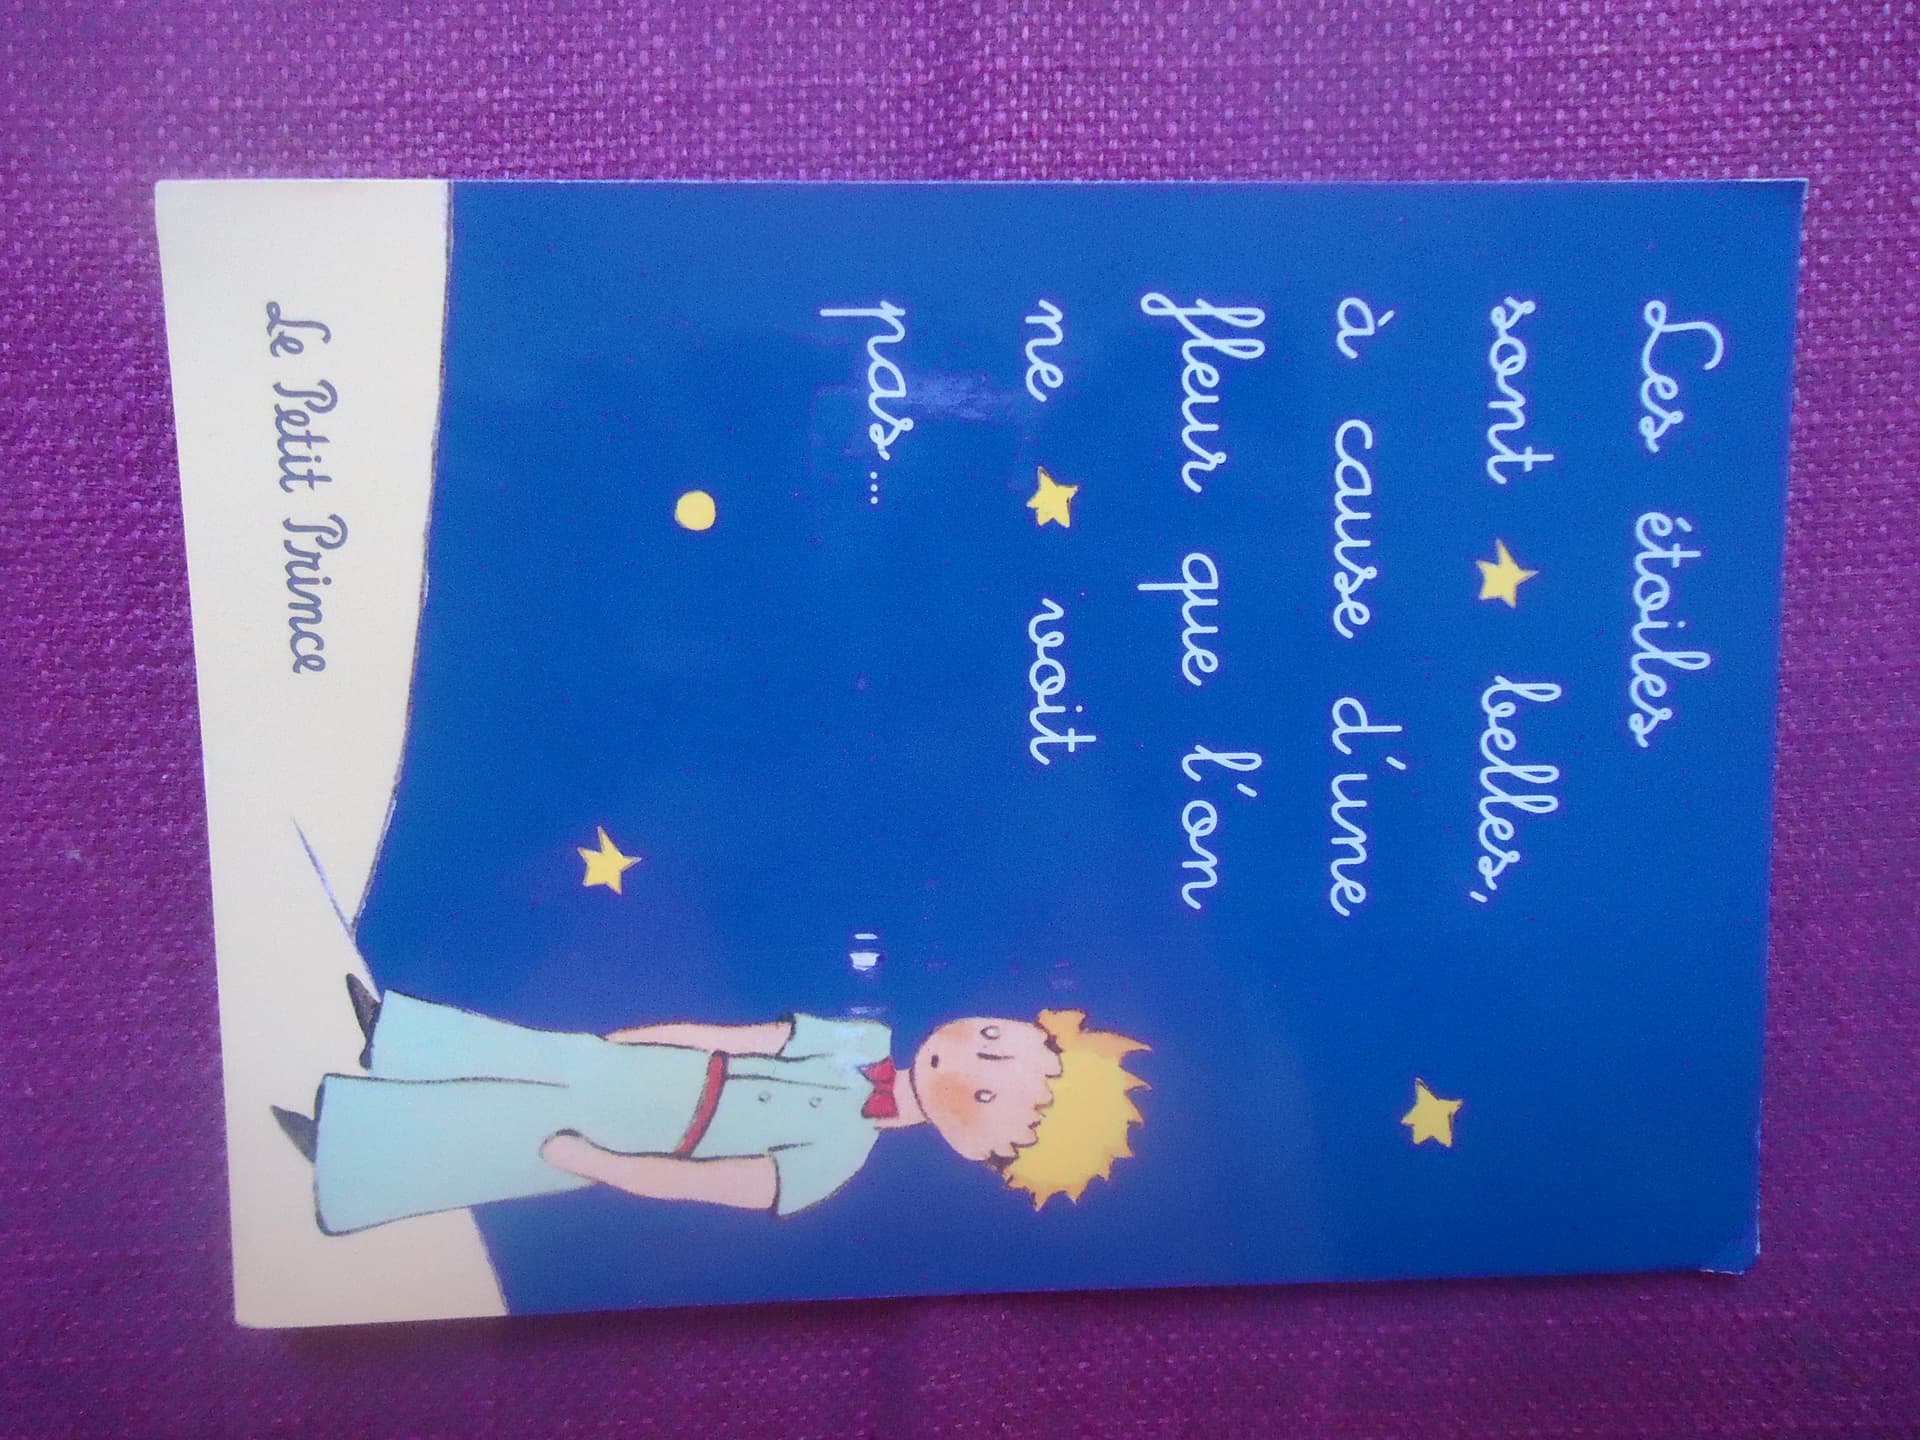 Les étoiles
sont belles,
à cause d'une
fleur que l'on
ne voit
pas...
Le Petit Prince